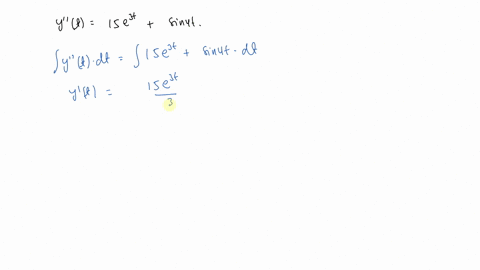 y''(t) = 15e^{3t} + sin4t.
∫y''(t)·dt = ∫15e^{3t} + sin4t·dt
y'(t) = 15e^{3t}/3